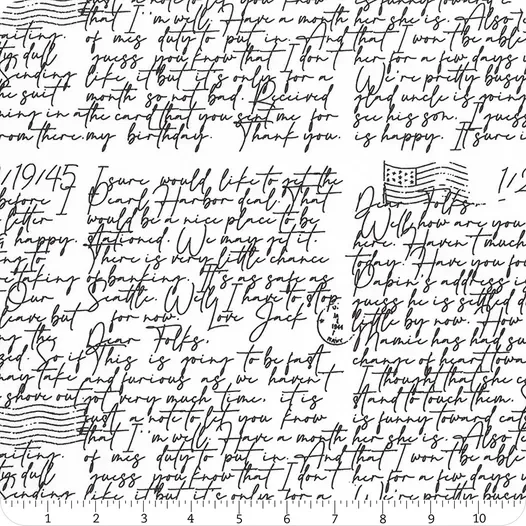 just a note to let you know
that I'm well. Have a month
of mis duty to put in. And
guess you know that I don't
like it but it's only for a
month so not bad. Received
the card that you sent me for
my birthday. Thank you.
is funny toward
her she is. Also I
that I won't be able
her for a few days
We're pretty busy
glad uncle is goin
see his son. I guess
is happy. It sure i
aiting.
dull
Sending
he suit
ning in a
rom there.
/19/45
before I
letter
happy.
ng to
taking
Our
leave but
I sure would like to get the
Pearl Harbor deal. That
would be a nice place to be
stationed. We may get it.
There is very little chance
of banking. It's as safe as
Seattle. Well, I have to stop
for now. Love Jack
Dear Folks,
This is going to be fast
and furious as we haven't
got very much time. it is
just a note to let you know
that I'm well. Have a month
of mis duty to put in. And
guess you know that I don't
like it but it's only for a
1944
NAVY
1/2
Dear Folks,
Well, how are you
here. Haven't much
today. Have you fo
Dabin's address i
guess he is settled d
little by now. How
Mamie has had su
change of heart towa
I thought that she c
stand to touch them.
is funny toward cat
her she is. Also I
that I won't be able
her for a few days u
We're pretty busy
the
zed. So if
may take
shove out
aiting.
dull
Sending
1 2 3 4 5 6 7 8 9 10